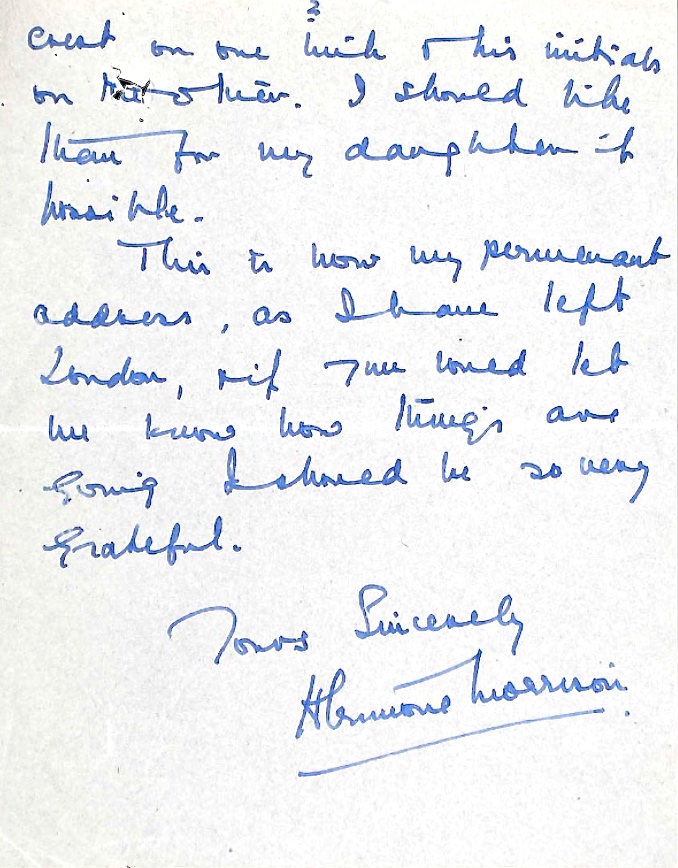 2
crest on one link & his initials
on the other. I should like
them for my daughter if
possible.
This is now my permenant
address, as I have left
London, & if you would let
me know how things are
going I should be so very
grateful.
Yours Sincerely
Hermione Morrison.